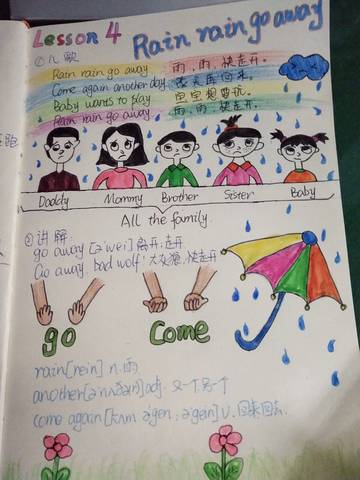 Lesson 4 Rain rain go away
① 儿歌
Rain rain go away 雨,雨,快走开。
Come again another day. 改天再回来。
Baby wants to play 宝宝想要玩。
Rain rain go away. 雨,雨,快走开。
Daddy Mommy Brother Sister Baby
All the family.
② 讲解
go away [ə'wei] 离开;走开
Go away, bad wolf! 大灰狼,快走开
go come
rain [rein] n.雨
another [ə'nʌðə] adj. 又一个另一个
come again [kʌm ə'gen; ə'gein] v. 回来回去.